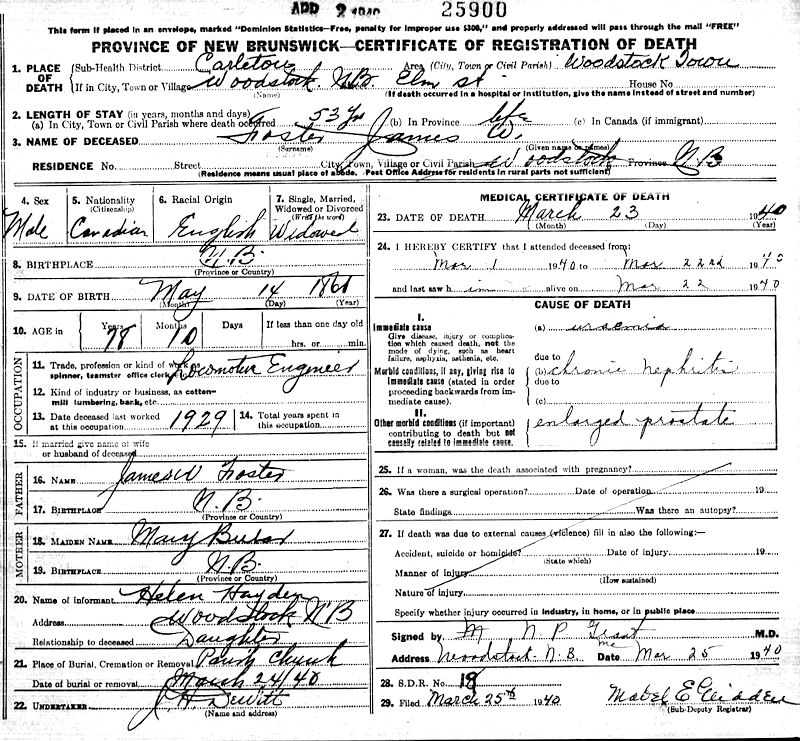 APR 2 1940 25900
This form if placed in an envelope, marked "Dominion Statistics—Free, penalty for improper use $300," and properly addressed will pass through the mail "FREE"
PROVINCE OF NEW BRUNSWICK—CERTIFICATE OF REGISTRATION OF DEATH
1. PLACE OF DEATH
(Sub-Health District Carleton Area (City, Town or Civil Parish) Woodstock Town
If in City, Town or Village Woodstock N.B. Elm St House No
(Name) (If death occurred in a hospital or institution, give the name instead of street and number)
2. LENGTH OF STAY (in years, months and days)
(a) In City, Town or Civil Parish where death occurred 53 yrs (b) In Province life (c) In Canada (if immigrant)
3. NAME OF DECEASED Foster James W.
(Surname) (Given name or names)
RESIDENCE No. Street City, Town, Village or Civil Parish Woodstock Province N.B.
(Residence means usual place of abode. Post Office Address for residents in rural parts not sufficient)
4. Sex Male
5. Nationality (Citizenship) Canadian
6. Racial Origin English
7. Single, Married, Widowed or Divorced (Write the word) Widowed
8. BIRTHPLACE N.B.
(Province or Country)
9. DATE OF BIRTH May 14 1861
(Month) (Day) (Year)
10. AGE in Years Months Days If less than one day old
78 10 hrs. or min.
OCCUPATION
11. Trade, profession or kind of work as spinner, teamster office clerk Locomotive Engineer
12. Kind of industry or business, as cotton-mill lumbering, bank, etc.
13. Date deceased last worked at this occupation 1929
14. Total years spent in this occupation
15. If married give name of wife or husband of deceased
FATHER
16. NAME James W Foster
17. BIRTHPLACE N.B.
(Province or Country)
MOTHER
18. MAIDEN NAME Mary
19. BIRTHPLACE N.B.
(Province or Country)
20. Name of informant Helen Hayden
Address Woodstock N B
Relationship to deceased Daughter
21. Place of Burial, Cremation or Removal Parish Church
Date of burial or removal March 24/40
22. UNDERTAKER J H Dewitt
(Name and address)
MEDICAL CERTIFICATE OF DEATH
23. DATE OF DEATH March 23 1940
(Month) (Day) (Year)
24. I HEREBY CERTIFY that I attended deceased from:
Mar 1 1940 to Mar 22nd 1940
and last saw him alive on Mar 22 1940
CAUSE OF DEATH
I.
Immediate cause
Give disease, injury or complication which caused death, not the mode of dying, such as heart failure, asphyxia, asthenia, etc.
(a) uraemia
due to
Morbid conditions, if any, giving rise to immediate cause (stated in order proceeding backwards from immediate cause).
(b) chronic nephritis
due to
(c)
II.
Other morbid conditions (if important) contributing to death but not causally related to immediate cause.
enlarged prostate
25. If a woman, was the death associated with pregnancy?
26. Was there a surgical operation? Date of operation 19
State findings Was there an autopsy?
27. If death was due to external causes (violence) fill in also the following:—
Accident, suicide or homicide? Date of injury 19
(State which)
Manner of injury
(How sustained)
Nature of injury
Specify whether injury occurred in industry, in home, or in public place
Signed by N. P. Grant M.D.
Address Woodstock N.B. Date Mar 25 1940
28. S.D.R. No. 18
29. Filed March 25th 1940 Mabel E Glidden
(Sub-Deputy Registrar)